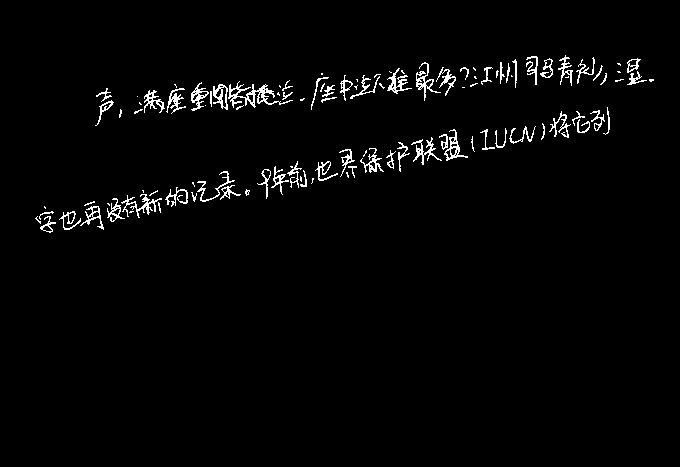 声，满座重闻皆掩泣。座中泣下谁最多?江州司马青衫湿。
字也再没有新的记录。9年前，世界保护联盟(IUCN)将它列